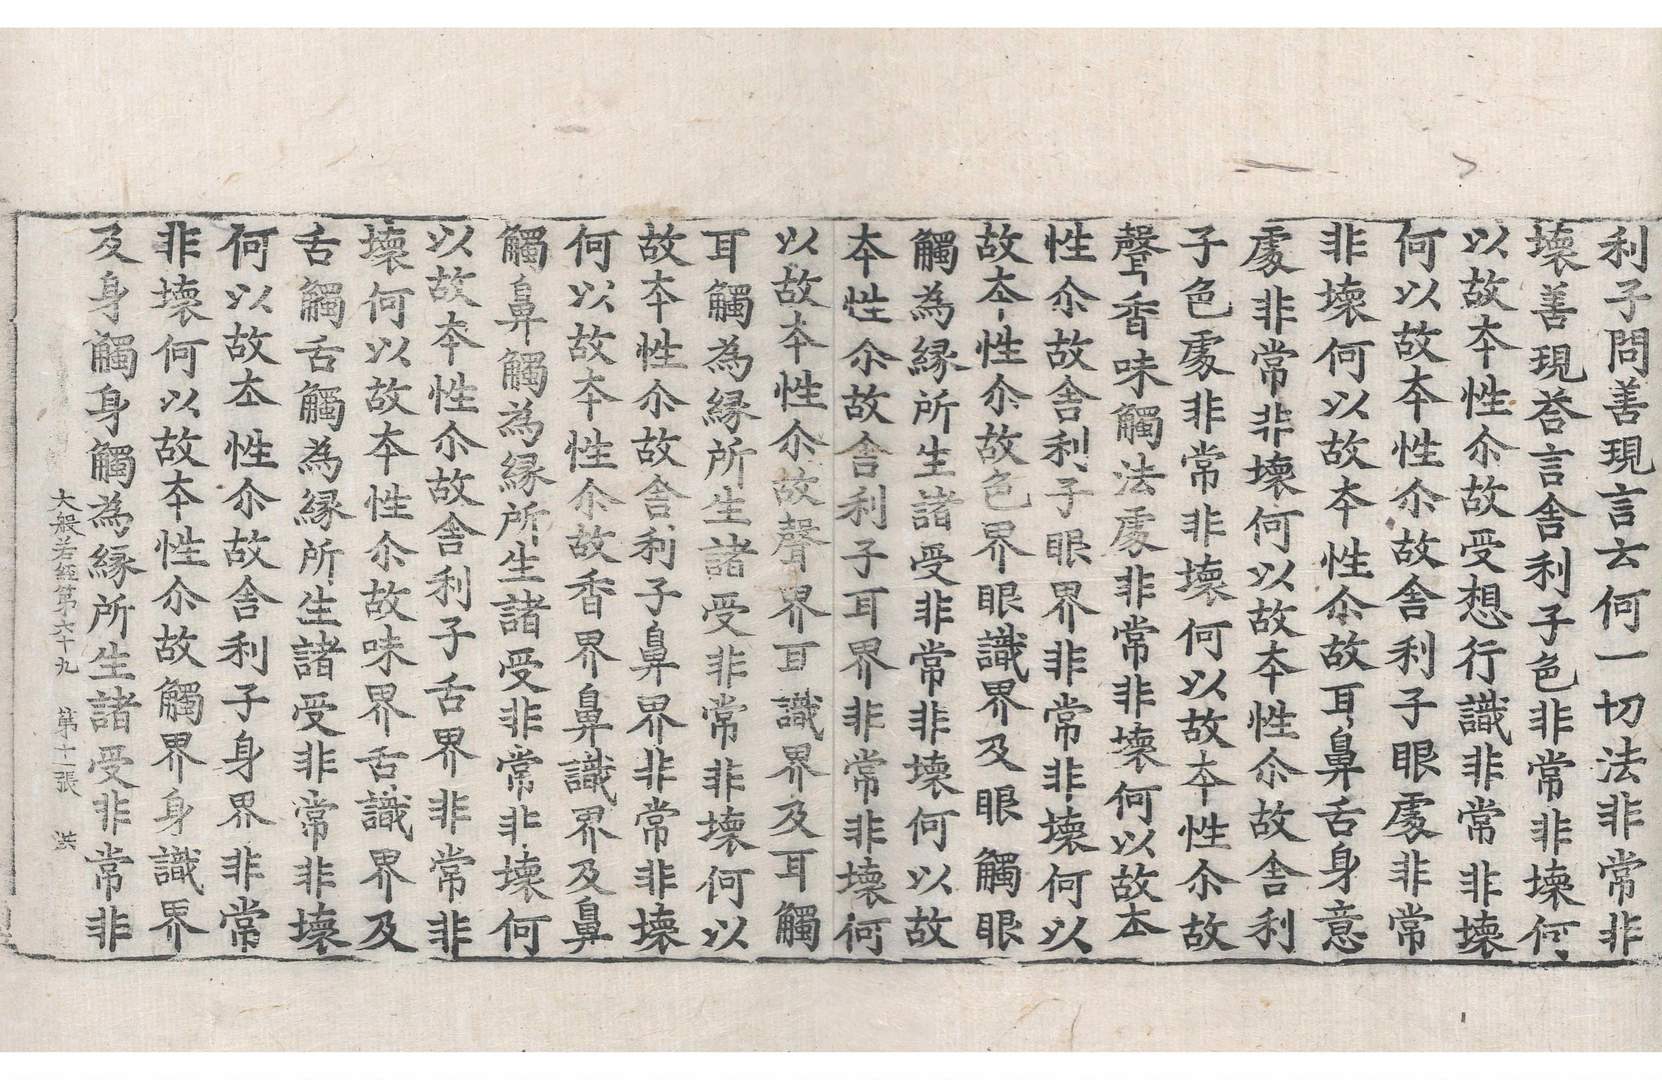 利子問善現言云何一切法非常非
壞善現荅言舎利子色非常非壞何
以故夲性尒故受想行識非常非壞
何以故夲性尒故舎利子眼處非常
非壞何以故夲性尒故耳鼻舌身意
處非常非壞何以故夲性尒故舎利
子色處非常非壞何以故夲性尒故
聲香味觸法處非常非壞何以故夲
性尒故舎利子眼界非常非壞何以
故夲性尒故色界眼識界及眼觸眼
觸為縁所生諸受非常非壞何以故
夲性尒故舎利子耳界非常非壞何
以故夲性尒故聲界耳識界及耳觸
耳觸為縁所生諸受非常非壞何以
故夲性尒故舎利子鼻界非常非壞
何以故夲性尒故香界鼻識界及鼻
觸鼻觸為縁所生諸受非常非壞何
以故夲性尒故舎利子舌界非常非
壞何以故夲性尒故味界舌識界及
舌觸舌觸為縁所生諸受非常非壞
何以故夲性尒故舎利子身界非常
非壞何以故夲性尒故觸界身識界
及身觸身觸為縁所生諸受非常非
大般若經第六十九 第十一張 洪